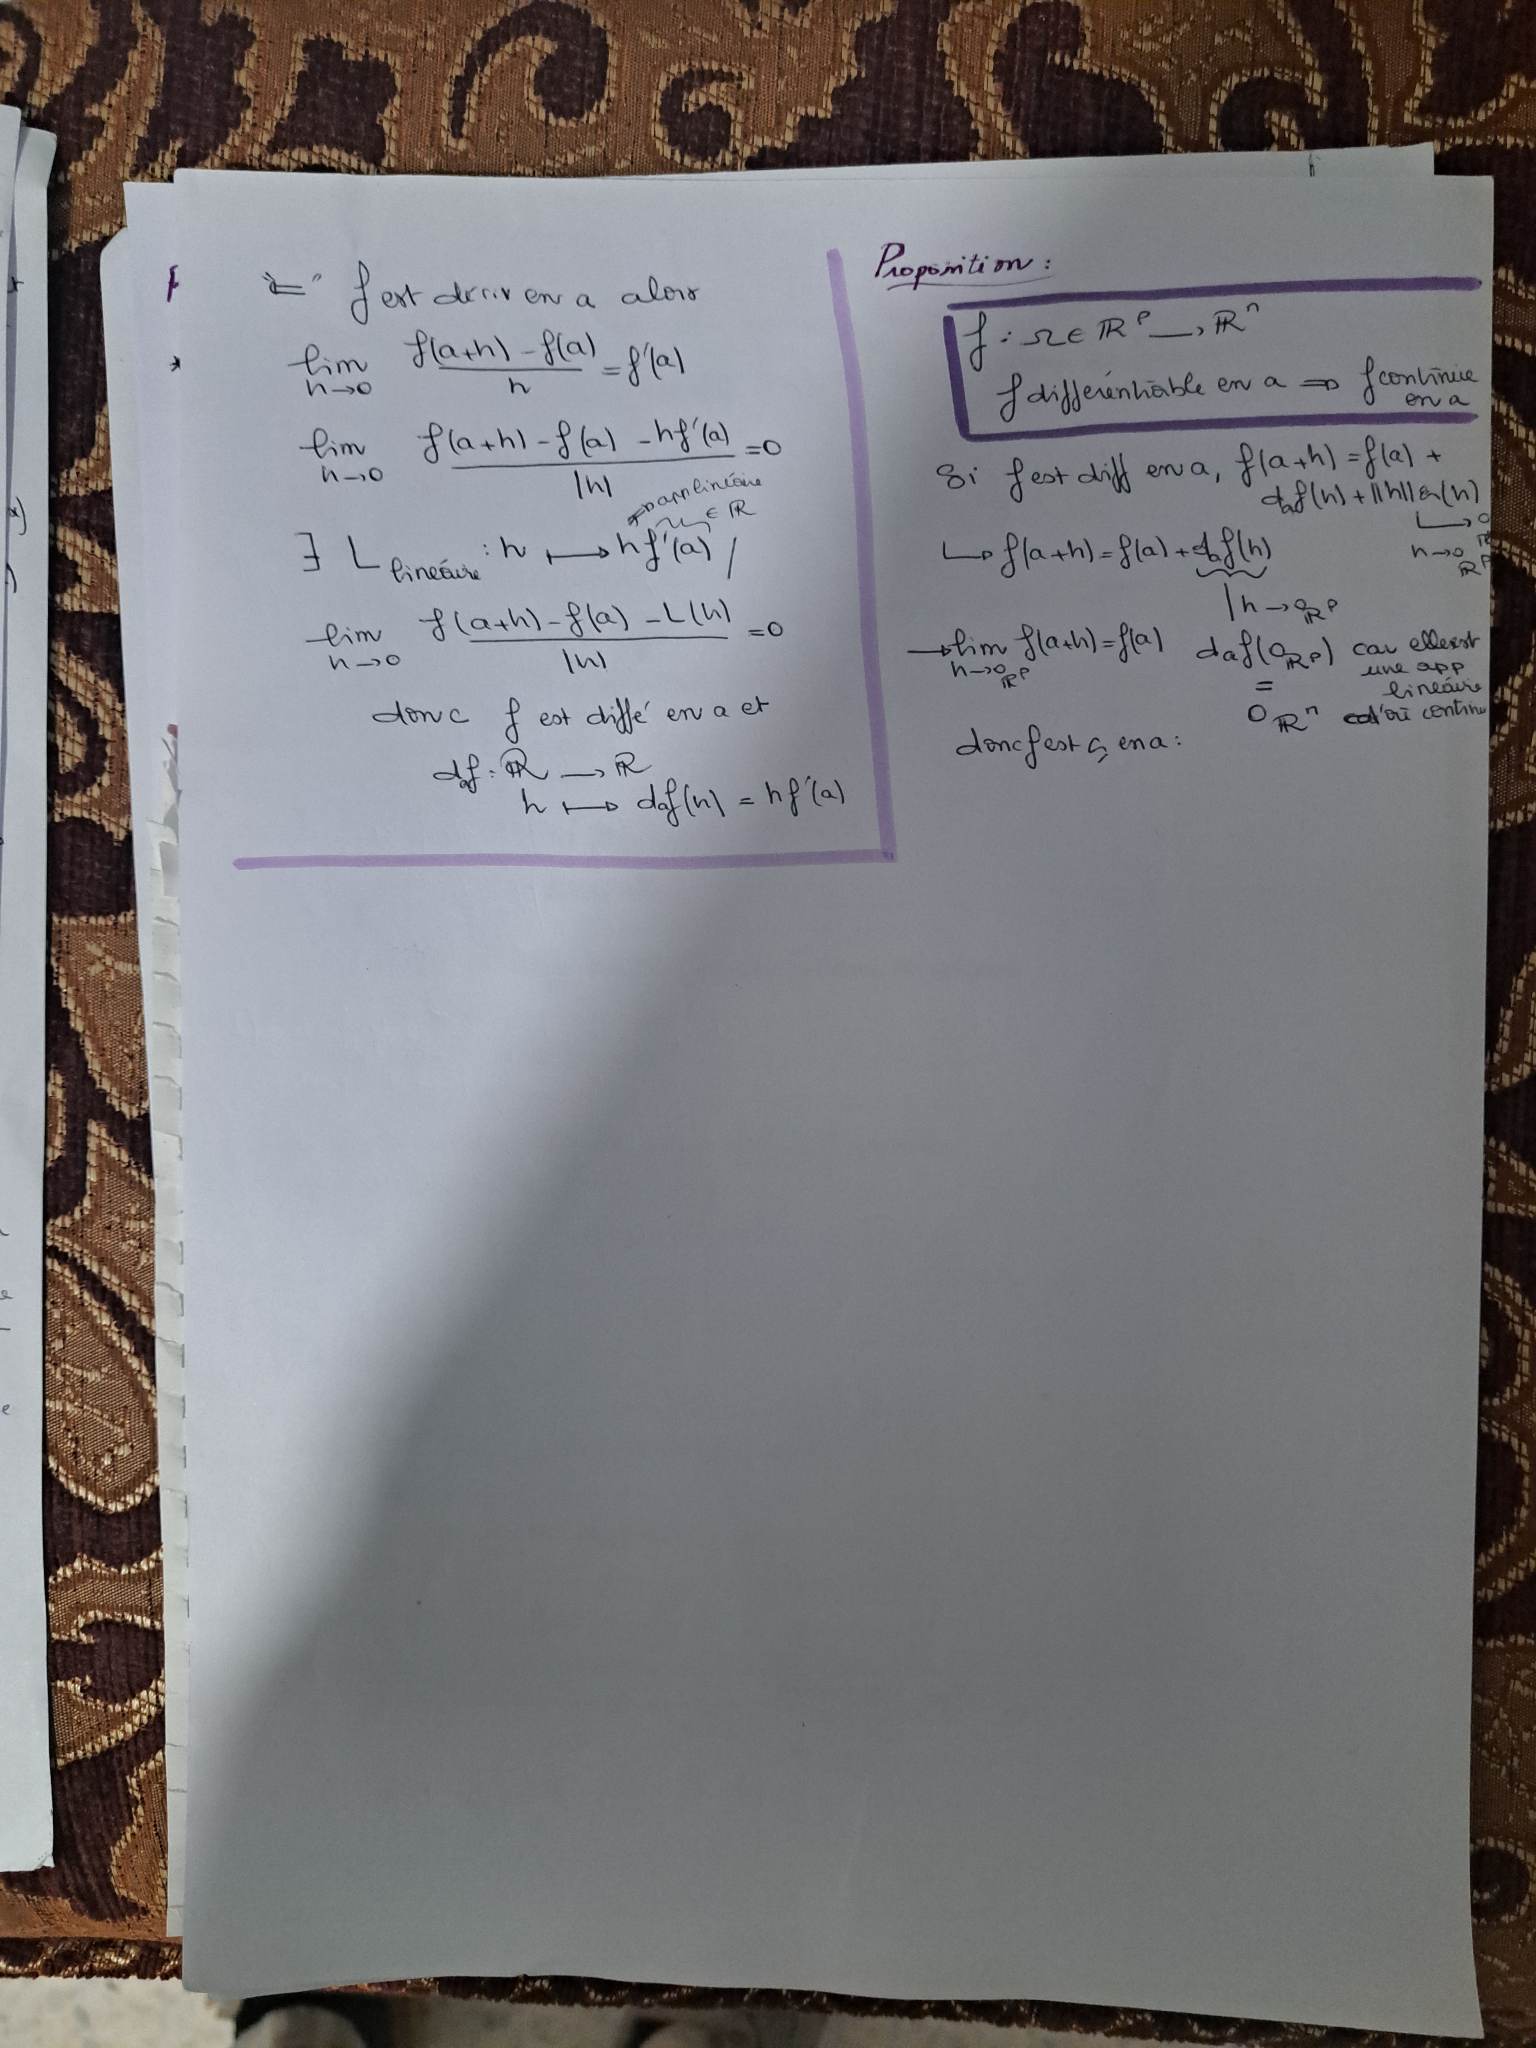 "⇐" f est dériv en a alors
lim h→0 (f(a+h) - f(a))/h = f'(a)
lim h→0 (f(a+h) - f(a) - hf'(a))/|h| = 0
app linéaire
∈ ℝ
∃ L linéaire : h ⟼ hf'(a) /
lim h→0 (f(a+h) - f(a) - L(h))/|h| = 0
donc f est diffé en a et
daf : ℝ → ℝ
h ⟼ daf(h) = hf'(a)
Proposition :
f : Ω ∈ ℝ^p → ℝ^n
f différentiable en a ⇒ f continue
en a
Si f est diff en a, f(a+h) = f(a) +
daf(h) + ||h|| ε(h)
h→0 ℝ^p
↳ f(a+h) = f(a) + daf(h)
h → 0 ℝ^p
→ lim h→0 ℝ^p f(a+h) = f(a)
daf(0 ℝ^p) car elle est
une app
= linéaire
0 ℝ^n d'où continue
donc f est ç en a :